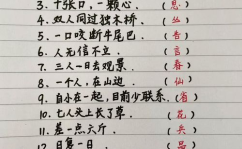 3. 十张口，一颗心。（思）
4. 双人同过独木桥。（丛）
5. 一口咬断牛尾巴（告）
6. 人无信不立。（言）
7. 三人一日去观景（春）
8. 一个人，在山边。（仙）
9. 自小在一起，目前少联系。（省）
10. 七人头上长了草。（花）
11. 差一点六斤（兵）
12. 日